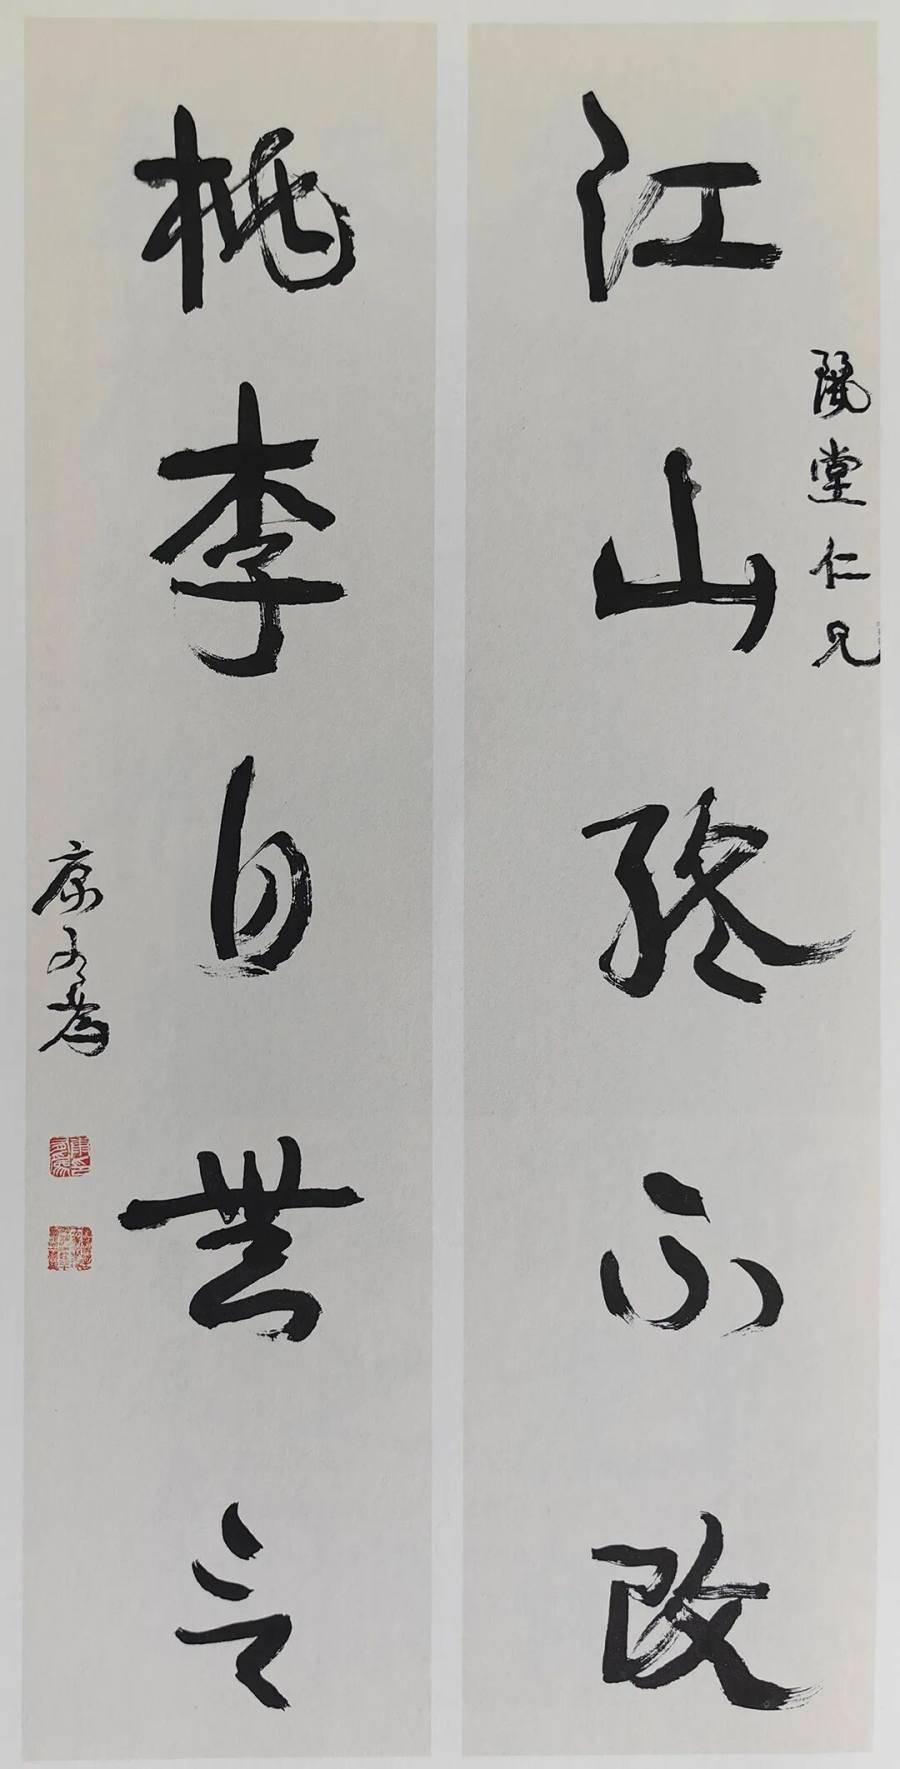 江山終不改
堂仁兄
桃李自無言
康有為